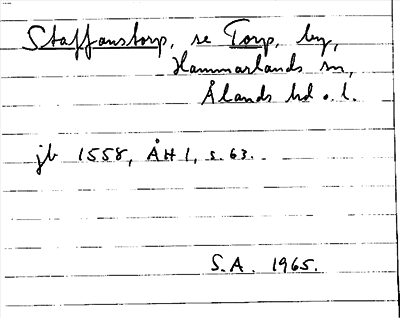 Staffanstorp, se Torp, by,
Hammarlands sn,
Ålands hd o. l.
jb 1558, ÅH 1, s. 63.
S.A. 1965.